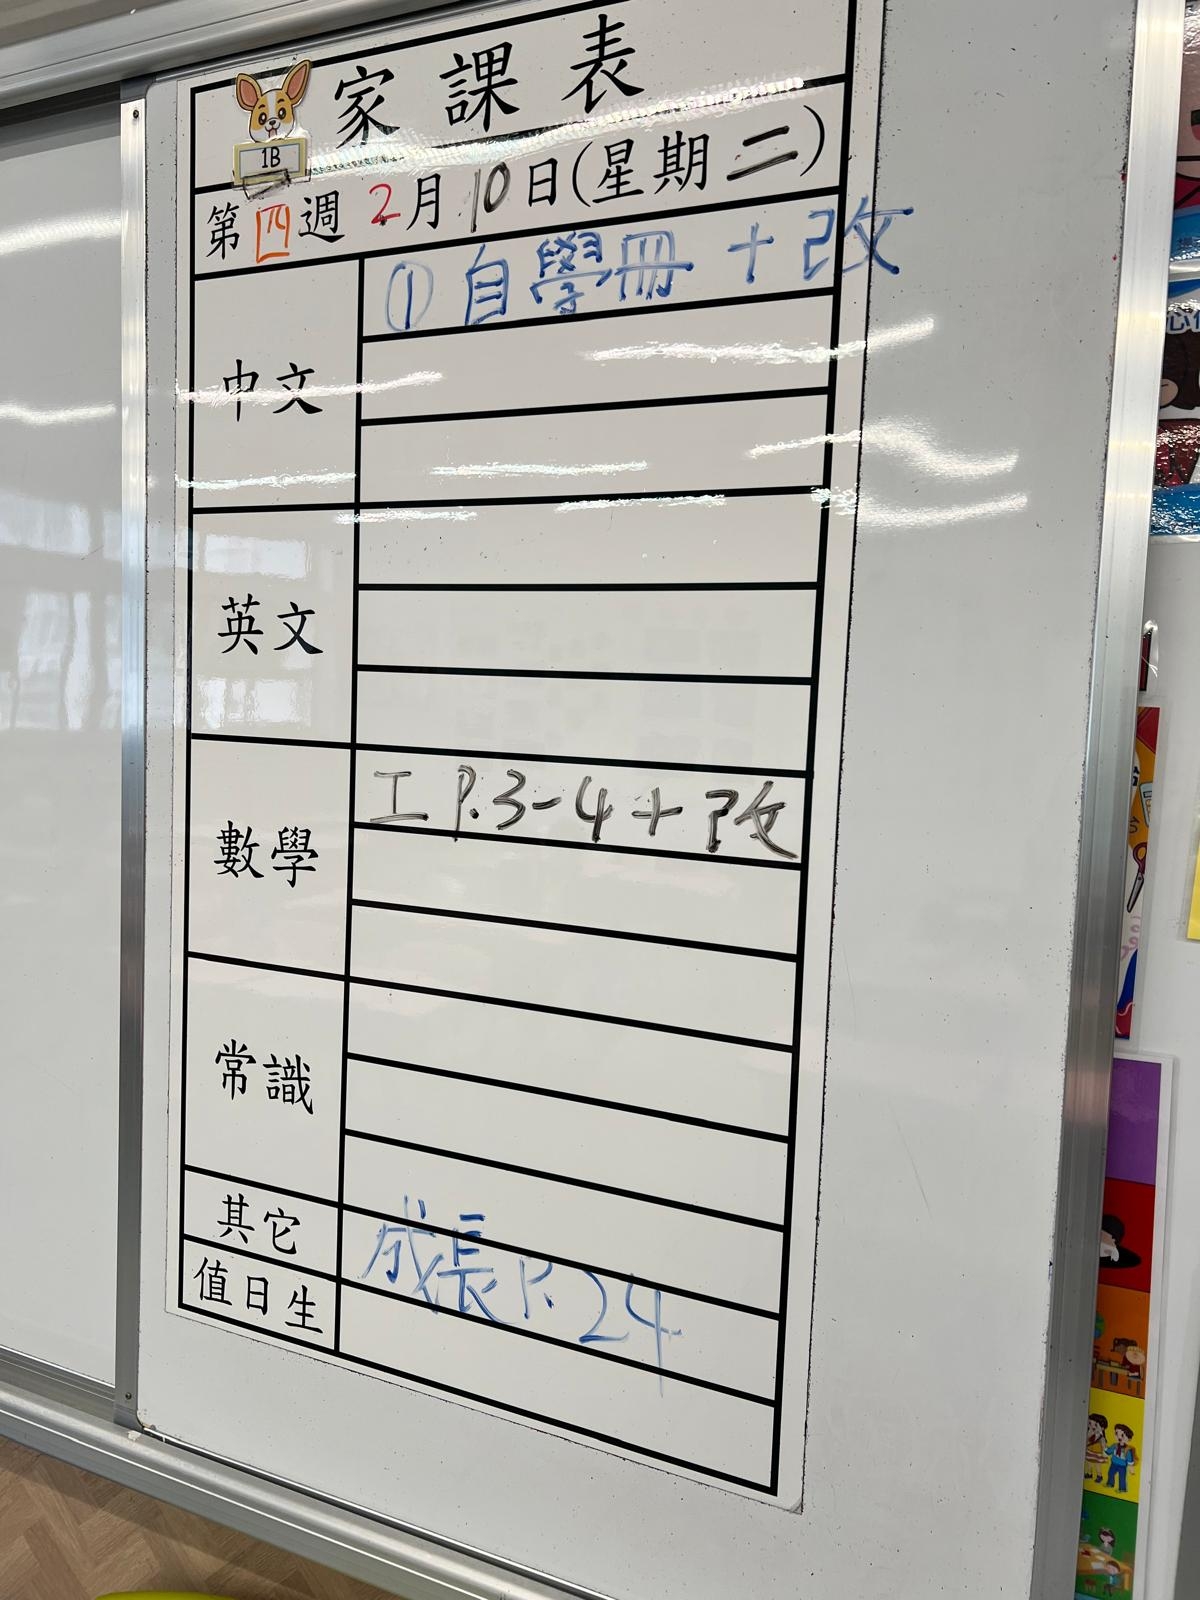 家課表
1B
第四週 2月10日(星期二)
中文
① 自學冊 + 改
英文
數學
工 P.3-4 + 改
常識
其它
成長 P.24
值日生